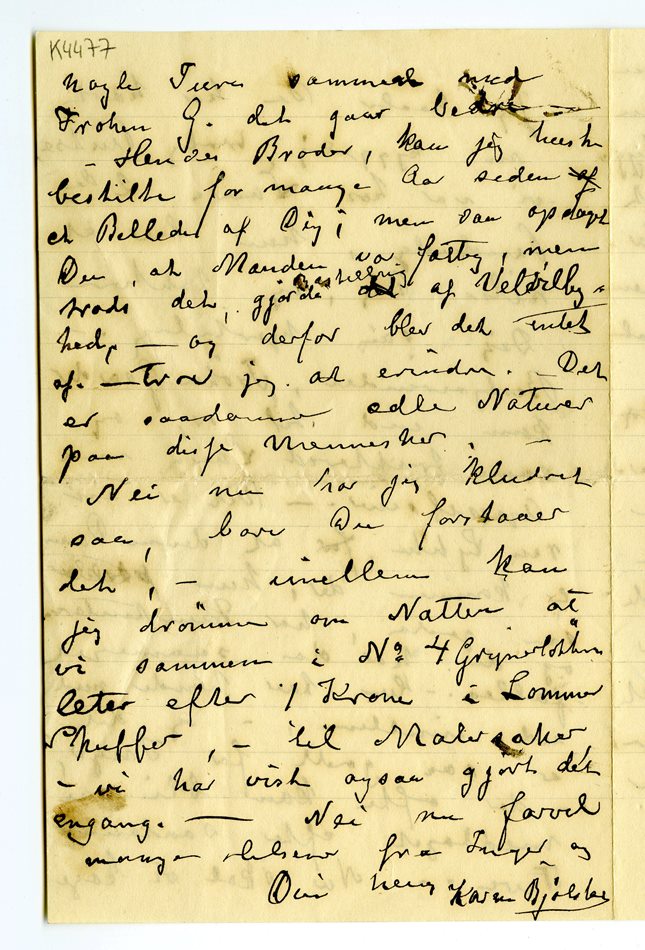 K4477
nogle Ture sammen med
Frøken G. det gaar bedre —
— Hendes Broder, kan jeg huske
bestilte for mange Aar siden af
et Billede af Dig; men saa opdaget
Du, at Manden va fattig, men
trods det, gjorde Bestilling det af Velvillig-
hed, — og derfor blev det intet
af. — Tror jeg at erindre. — Det
er saadanne ædle Naturer
paa disse Mennesker. —
Nei nu har jeg kludret
saa, bare Du forstaaer
det, — imellem kan
jeg drömme om Natten at
vi sammen i No 4 Grynerløkken
leter efter 1 Krone i Lommer
Skuffer, — til Malersaker
— vi har vist ogsaa gjort det
engang. — Nei nu farvel
mange hilsener fra Inger og
Din heng Karen Bjølstad